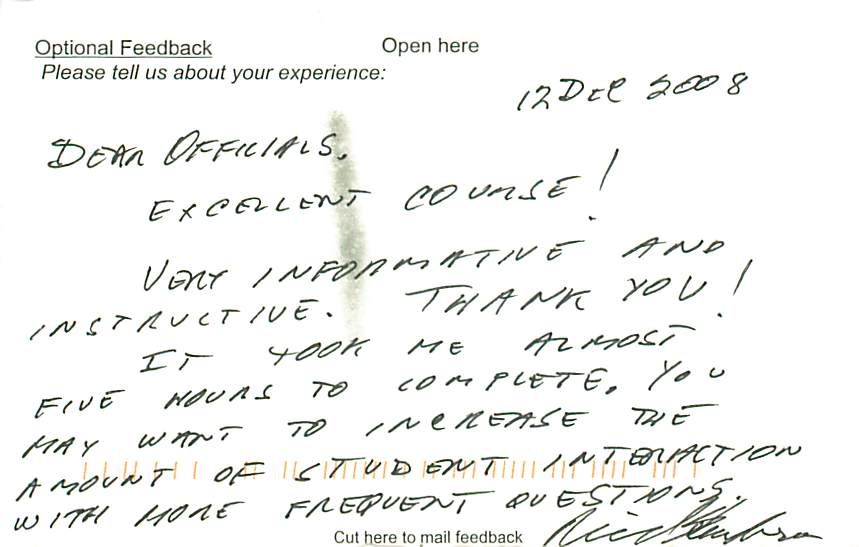 Optional Feedback Open here
Please tell us about your experience:
12 DEC 2008
DEAR OFFICIALS.
EXCELLENT COURSE!
VERY INFORMATIVE AND
INSTRUCTIVE. THANK YOU!
IT TOOK ME ALMOST
FIVE HOURS TO COMPLETE. YOU
MAY WANT TO INCREASE THE
AMOUNT OF STUDENT INTERACTION
WITH MORE FREQUENT QUESTIONS.
Cut here to mail feedback